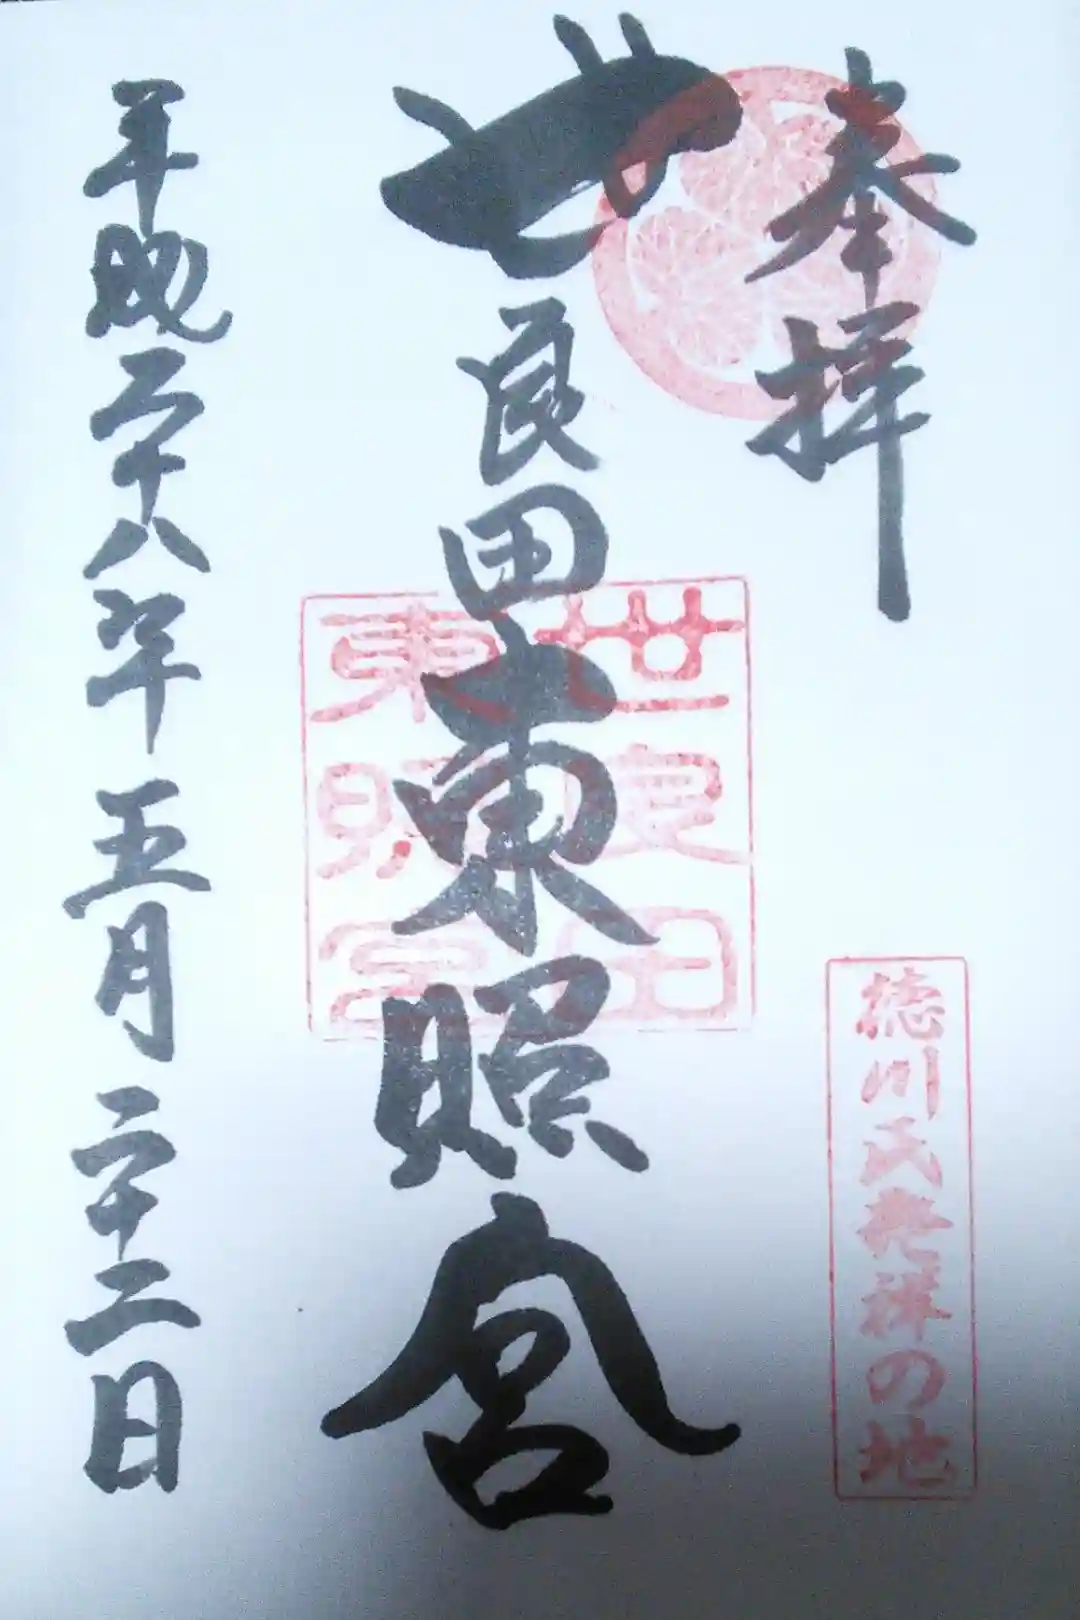 奉拝
徳川氏発祥の地
世良田東照宮
世良田
東照宮
平成二十八年五月二十二日